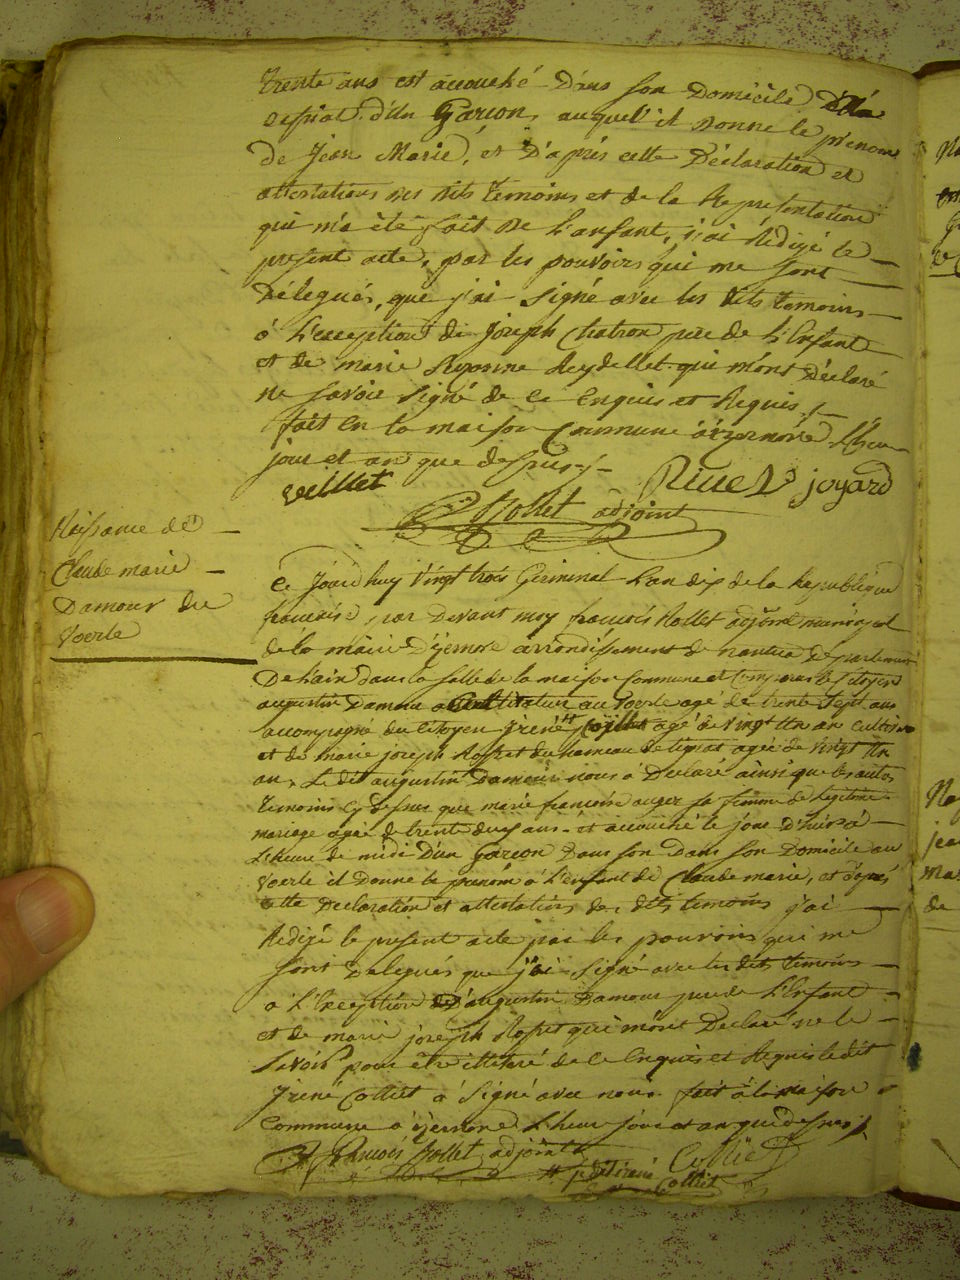 trente ans est accouché Dans son Domicile
d'un Garcon, auquel il Donne le prenom
De Jean Marie, et D'après cette Déclaration et
attestations des dits temoins et de la Representation
qui m'a été fait De L'anfant, j'ai Rédigé le
present acte, par les pouvoirs qui me sont
Délegués, que j'ai signé avec les dits temoins
à L'exception de joseph Chatron pere de L'Enfant
et de marie Reydellet qui m'ont Déclaré
ne savoir signé de ce Enquis et Requis
fait En la maison Commune L'heu
jour et an que dessus
veillet Rivet joyard
Rollet adjoint
Naissance de
Claude marie
Damour du
Voerle
Ce Jourd'huy Vingt trois Germinal L'an dix de la Republique
francaise, par Devant moy francois Rollet adjoint municipal
de la mairie D'yernore arrondissement de nantua departement
De L'ain dans la salle de la maison Commune et Comparus le Citoyen
augustin Damour au Voerle agé de trente sept ans
accompagné du Citoyen Irené agé de vingt un an
et de marie joseph du hameau de agée de vingt un
an, Le dit augustin Damour nous a Déclaré ainsi que les autres
temoins cy dessus que marie francoise auger sa femme De Legitime
mariage agee de trente ans et accouché le jour D'hier à
L'heure de midi D'un Garcon Dans son Dans son Domicile au
Voerle il Donne le prenom à L'enfant de Claude marie, et d'après
cette Déclaration et attestations des dits temoins j'ai
Redigé le present acte par les pouvoirs qui me
sont Delegués que j'ai signé avec les dits temoins
à L'Exception D'augustin Damour pere de L'Enfant
et de marie joseph qui m'ont Declaré ne le
savoir pour être illeteré de ce Enquis et Requis le dit
Irené Colliet a signé avec nous fait à la maison
Commune à yernore L'heure jour et an que dessus
francois Rollet adjoint Colliet
irené
Colliet